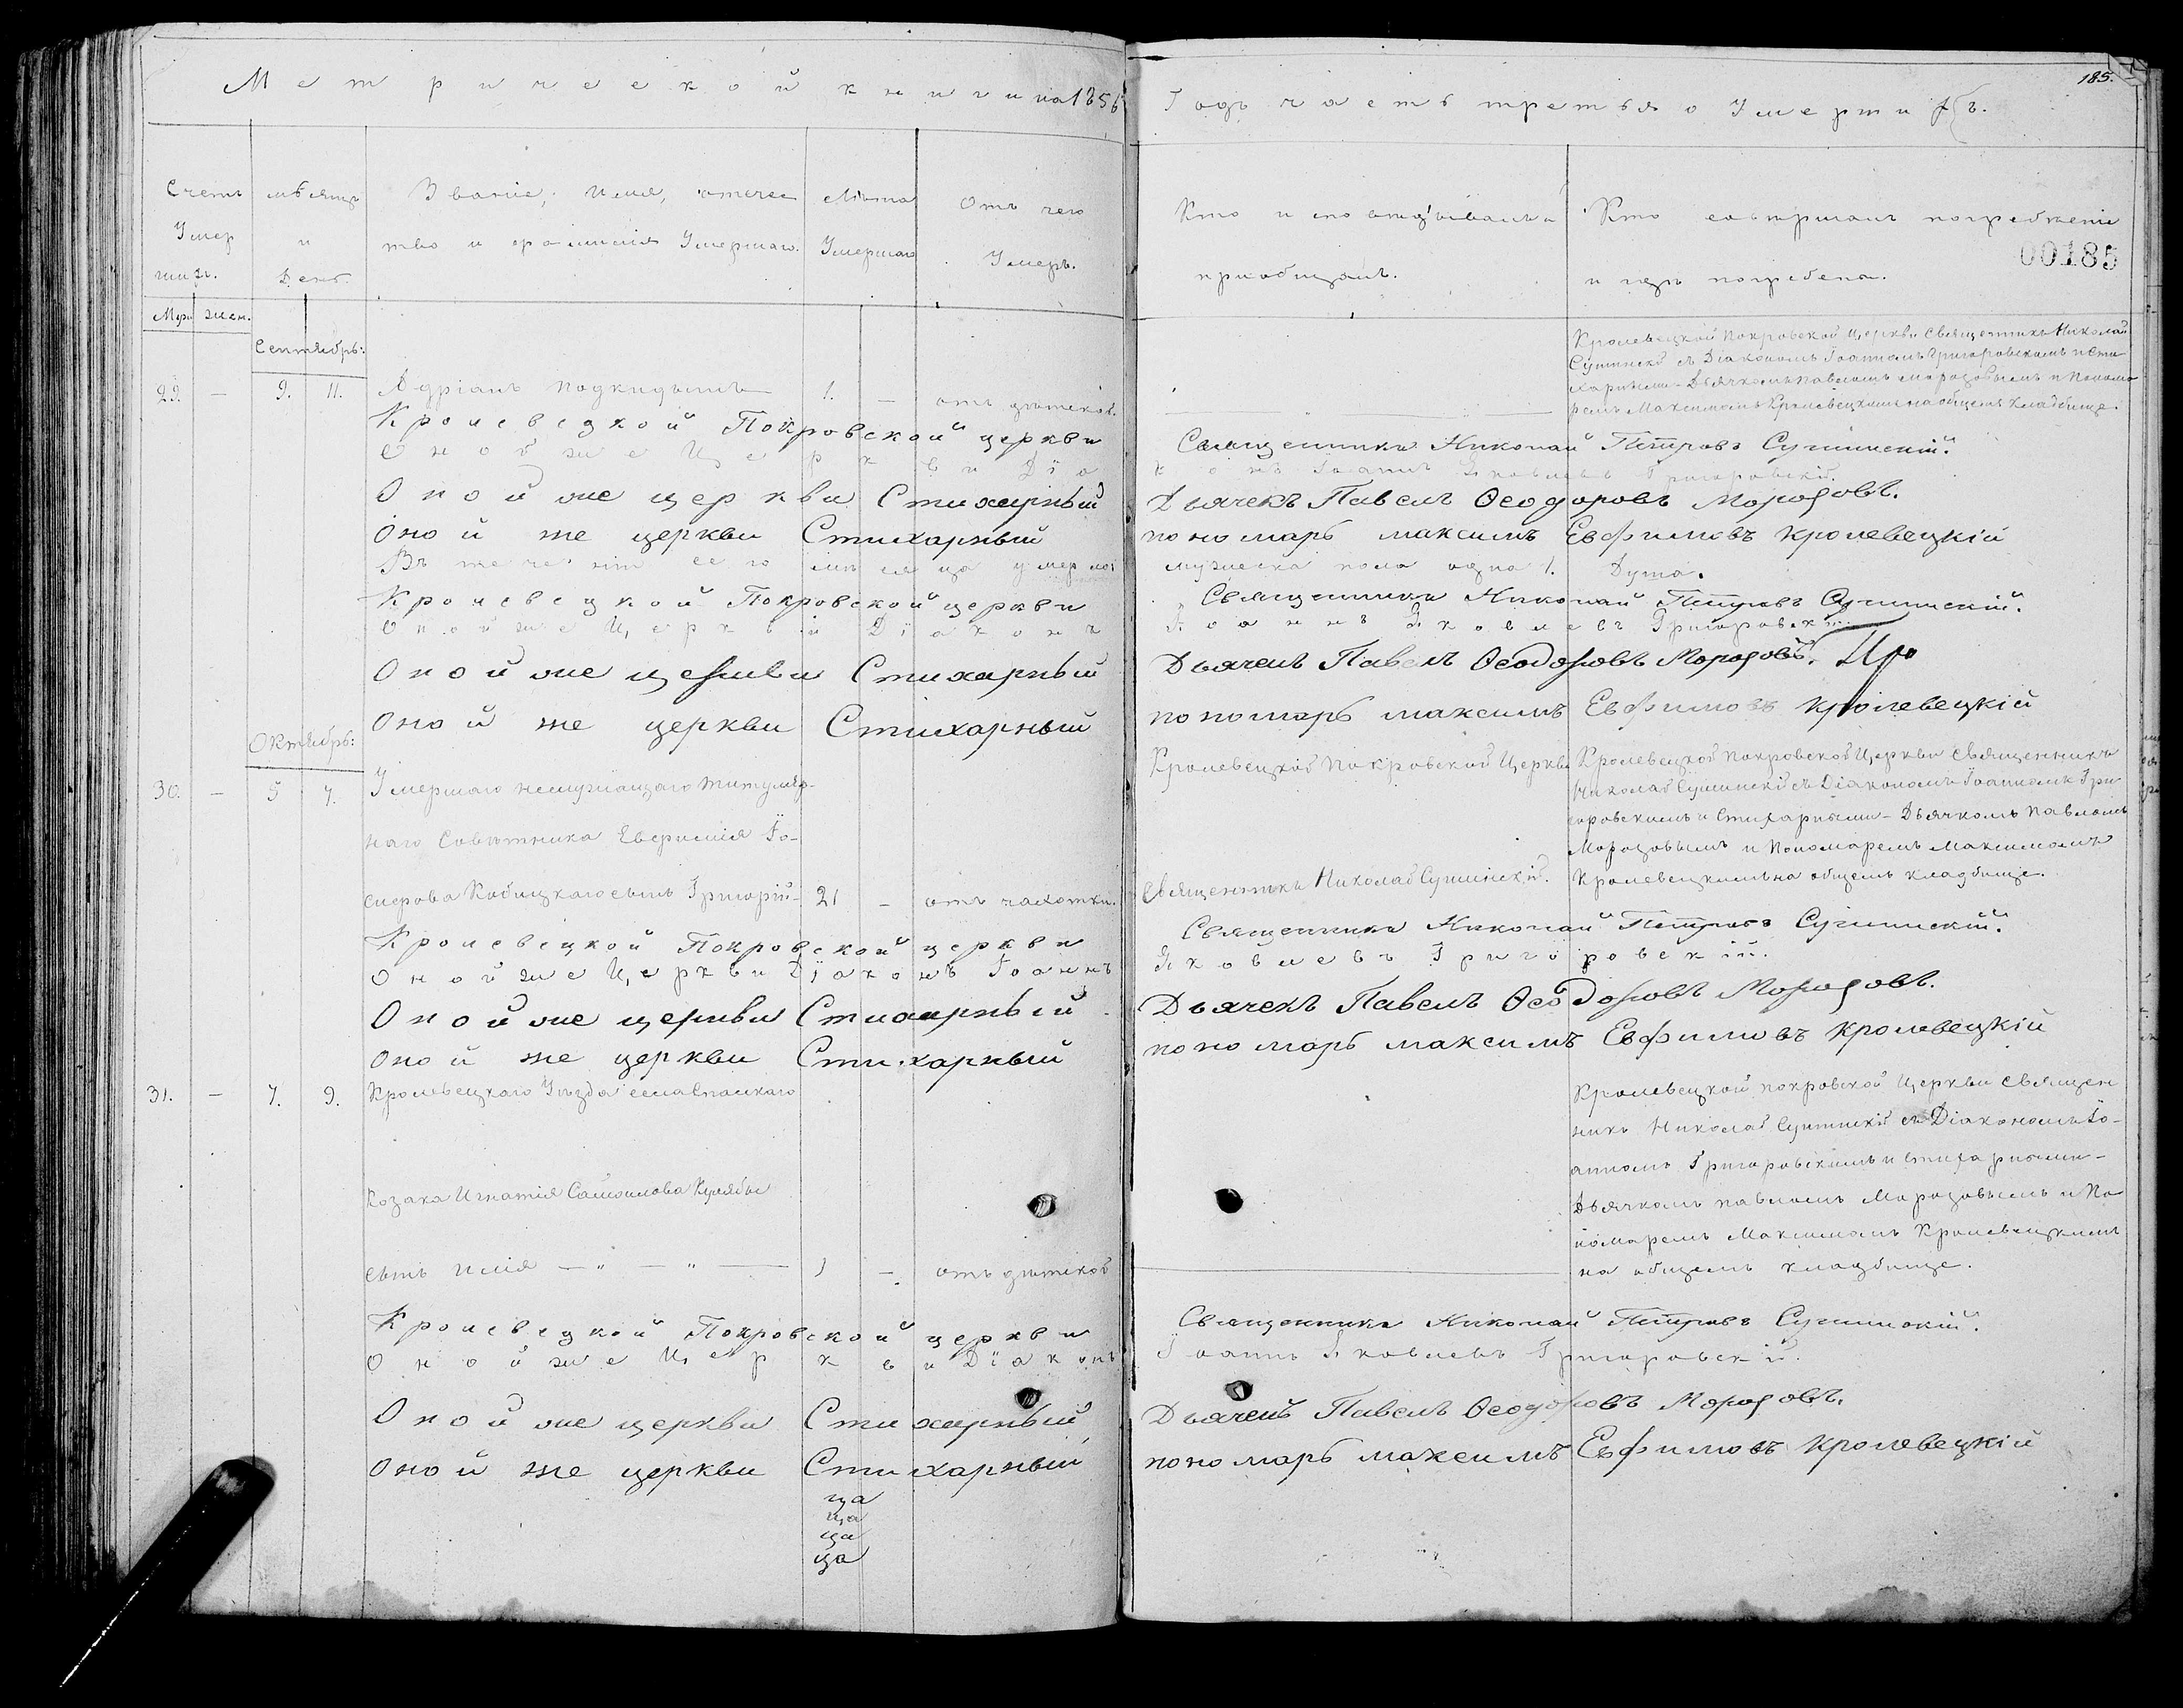 Метрической книги на 1856
Счетъ
Умер
шихъ.
Муж. жен.
мѣсяцъ
и
День.
Званіе, Имя, отчес
тво и фамилія Умершаго.
Лѣта
Умершаго
Отъ чего
Умеръ.
Сентябрь:
29. — 9. 11. Адріанъ подкидышъ 1. — отъ дѣтской.
Кролевецкой Покровской церкви
Оной же Церкви Діа
Оной же церкви Стихарный
Оной же церкви Стихарный
Въ теченіи сего мѣсяца умерло:
Кролевецкой Покровской церкви
Оной же Церкви Діаконъ
Оной же церкви Стихарный
Оной же церкви Стихарный
Октябрь:
30. — 5 7. Умершаго неслужащаго титуляр-
наго Совѣтника Евфимія Іо-
сифова Кобицкаго сынъ Григорій- 21 — отъ чахотки.
Кролевецкой Покровской церкви
Оной же Церкви Діаконъ Іоаннъ
Оной же церкви Стихарный
Оной же церкви Стихарный
31. — 7. 9. Кролевецкаго Уѣзда села Спаскаго
Козака Игнатія Самоилова Кулябы
сынъ Илія — „ — „ — 1 — отъ дѣтской
Кролевецкой Покровской церкви
Оной же Церкви Діаконъ
Оной же церкви Стихарный
Оной же церкви Стихарный
ца
ца
ца
ца
185.
Годъ часть третья о Умершихъ.
Кто исповѣдывалъ и
пріобщалъ.
Кто совершалъ погребеніе
00185
и гдѣ погребены.
Кролевецкой Покровской Церкви Священникъ Николай
Сушинскій съ Діакономъ Іоанномъ Григоровскимъ и Сти-
харными- Дьячкомъ Павломъ Морозовымъ и Понома
ремъ Максимомъ Кролевецкимъ на общемъ кладбище.
Священникъ Николай Петровъ Сушинскій.
конъ Іоаннъ Яковлевъ Григоровскій.
Дьячекъ Павелъ Ѳеодоровъ Морозовъ.
пономарь максимъ Евфимовъ кролевецкій
мужеска пола одна 1. Душа.
Священникъ Николай Петровъ Сушинскій.
Іоаннъ Яковлевъ Григоровскій.
Дьячекъ Павелъ Ѳеодоровъ Морозовъ.
пономарь максимъ Евфимовъ кролевецкій
Кролевецкой Покровской Церкви
Священникъ Николай Сушинскій.
Кролевецкой Покровской Церкви Священникъ
Николай Сушинскій съ Діакономъ Іоанномъ Гри-
горовскимъ и Стихарными- Дьячкомъ Павломъ
Морозовымъ и Пономаремъ Максимомъ
Кролевецкимъ на общемъ кладбище.
Священникъ Николай Петровъ Сушинскій.
Яковлевъ Григоровскій.
Дьячекъ Павелъ Ѳеодоровъ Морозовъ.
пономарь максимъ Евфимовъ кролевецкій
Кролевецкой покровской Церкви Священ
никъ Николай Сушинскій съ Діакономъ Іо-
анномъ Григоровскимъ и Стихарными-
Дьячкомъ павломъ Морозовымъ и По
номаремъ Максимомъ Кролевецкимъ
на общемъ кладбище.
Священникъ Николай Петровъ Сушинскій.
Іоаннъ Яковлевъ Григоровскій.
Дьячекъ Павелъ Ѳеодоровъ Морозовъ.
пономарь максимъ Евфимовъ кролевецкій